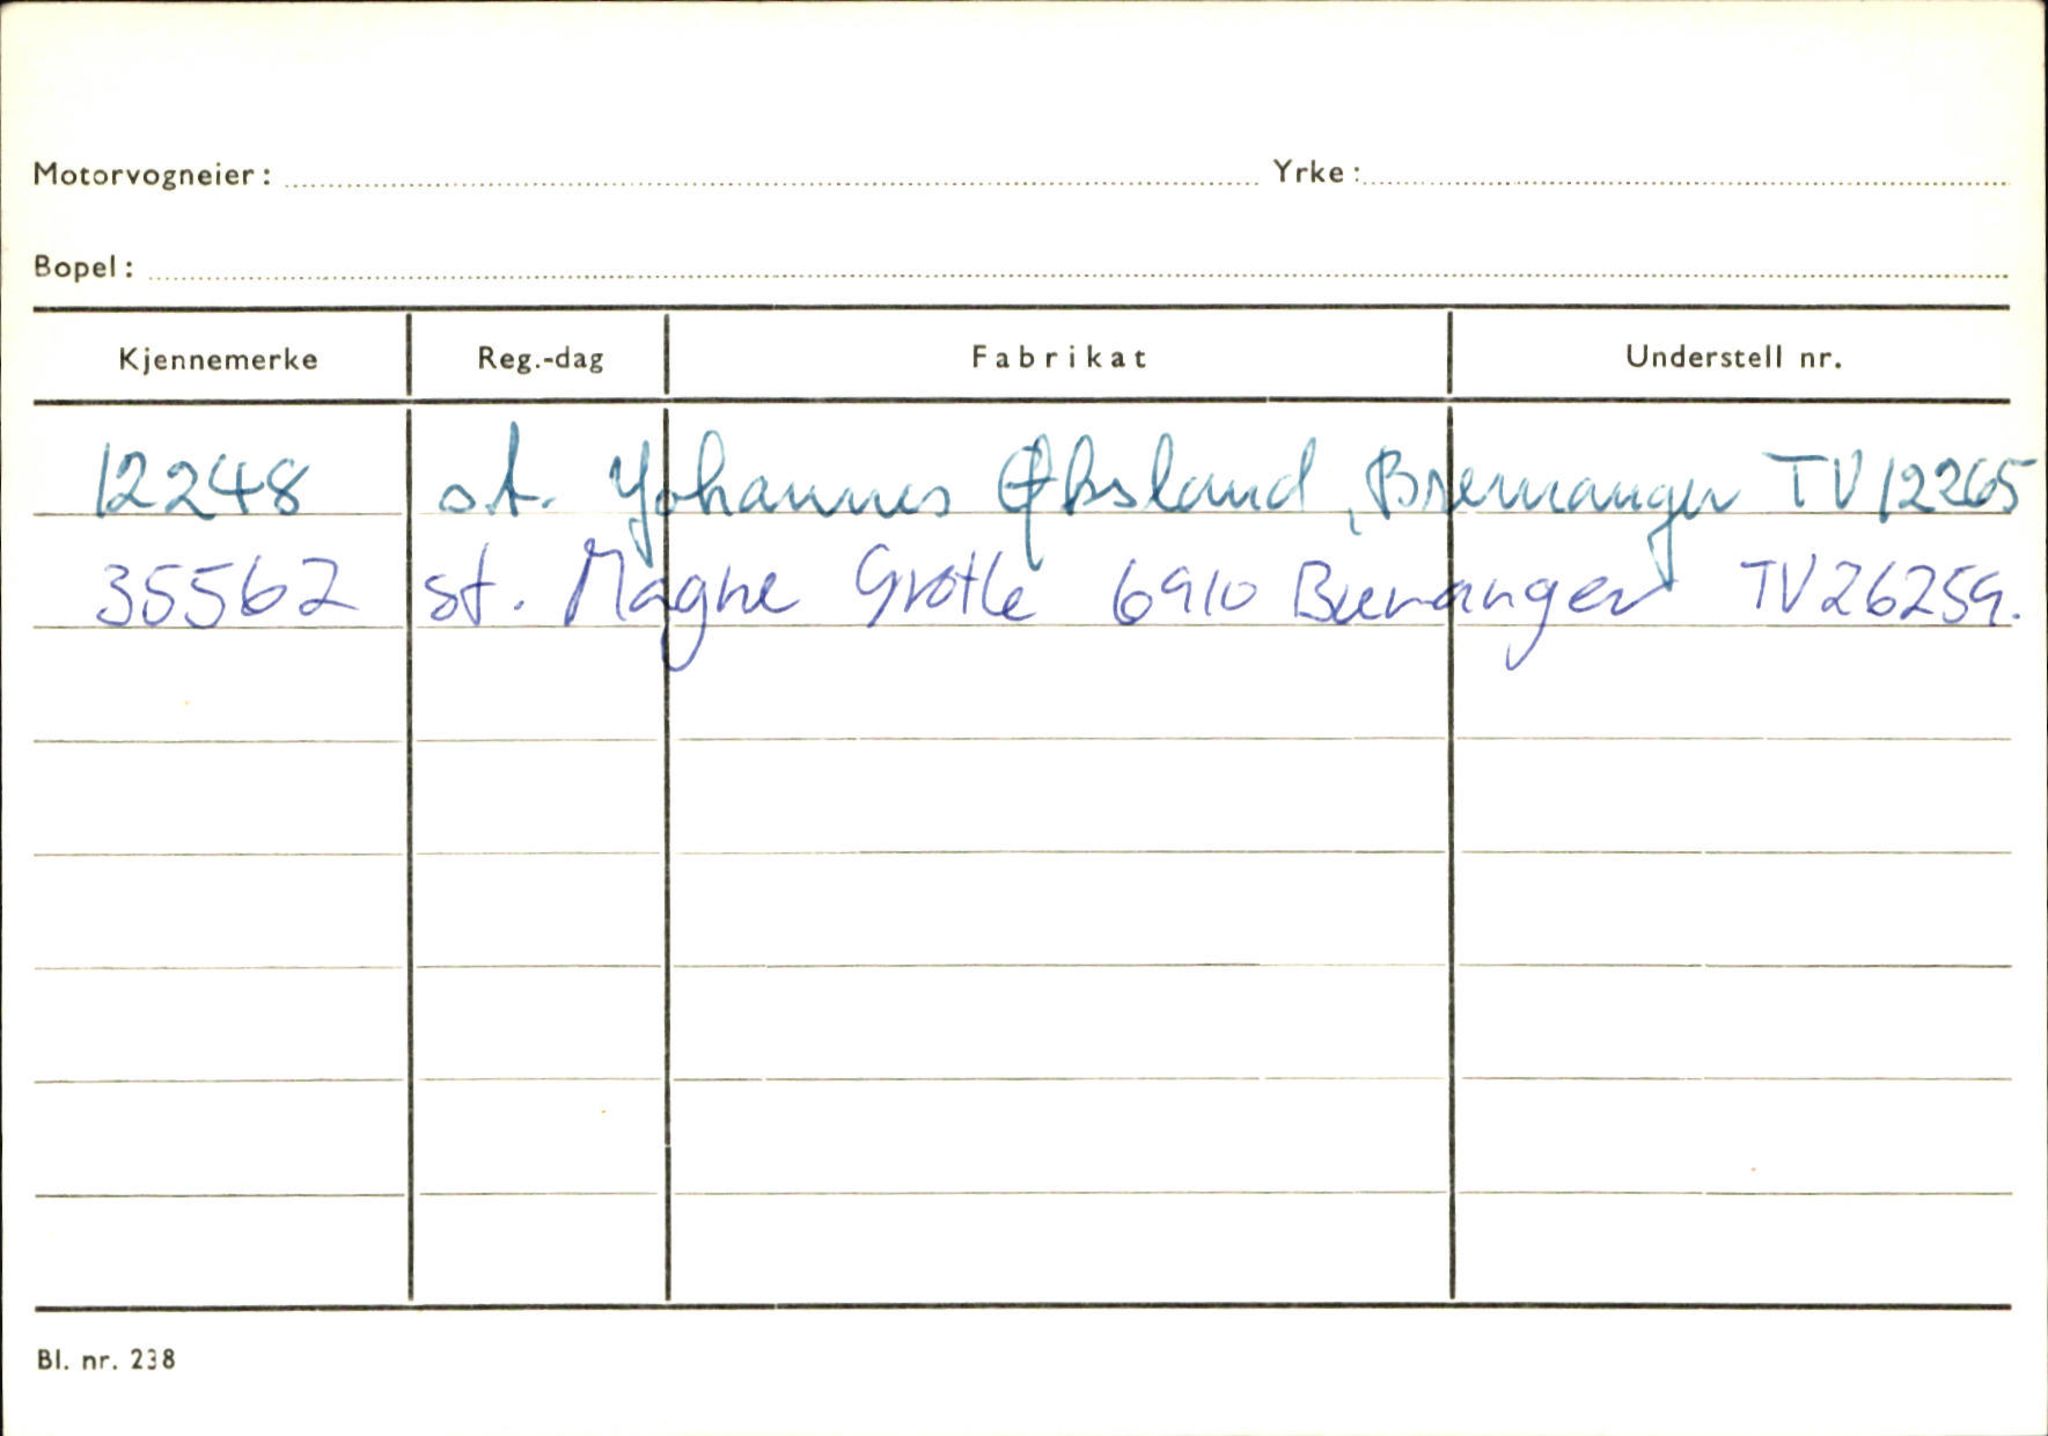 Motorvogneier: Yrke:
Bopel:
Kjennemerke Reg.-dag Fabrikat Understell nr.
12248 st. Johannes Øksland, Bremanger TV 12265
35562 st. Magne Grotle 6910 Bremanger TV 26259.
Bl. nr. 238